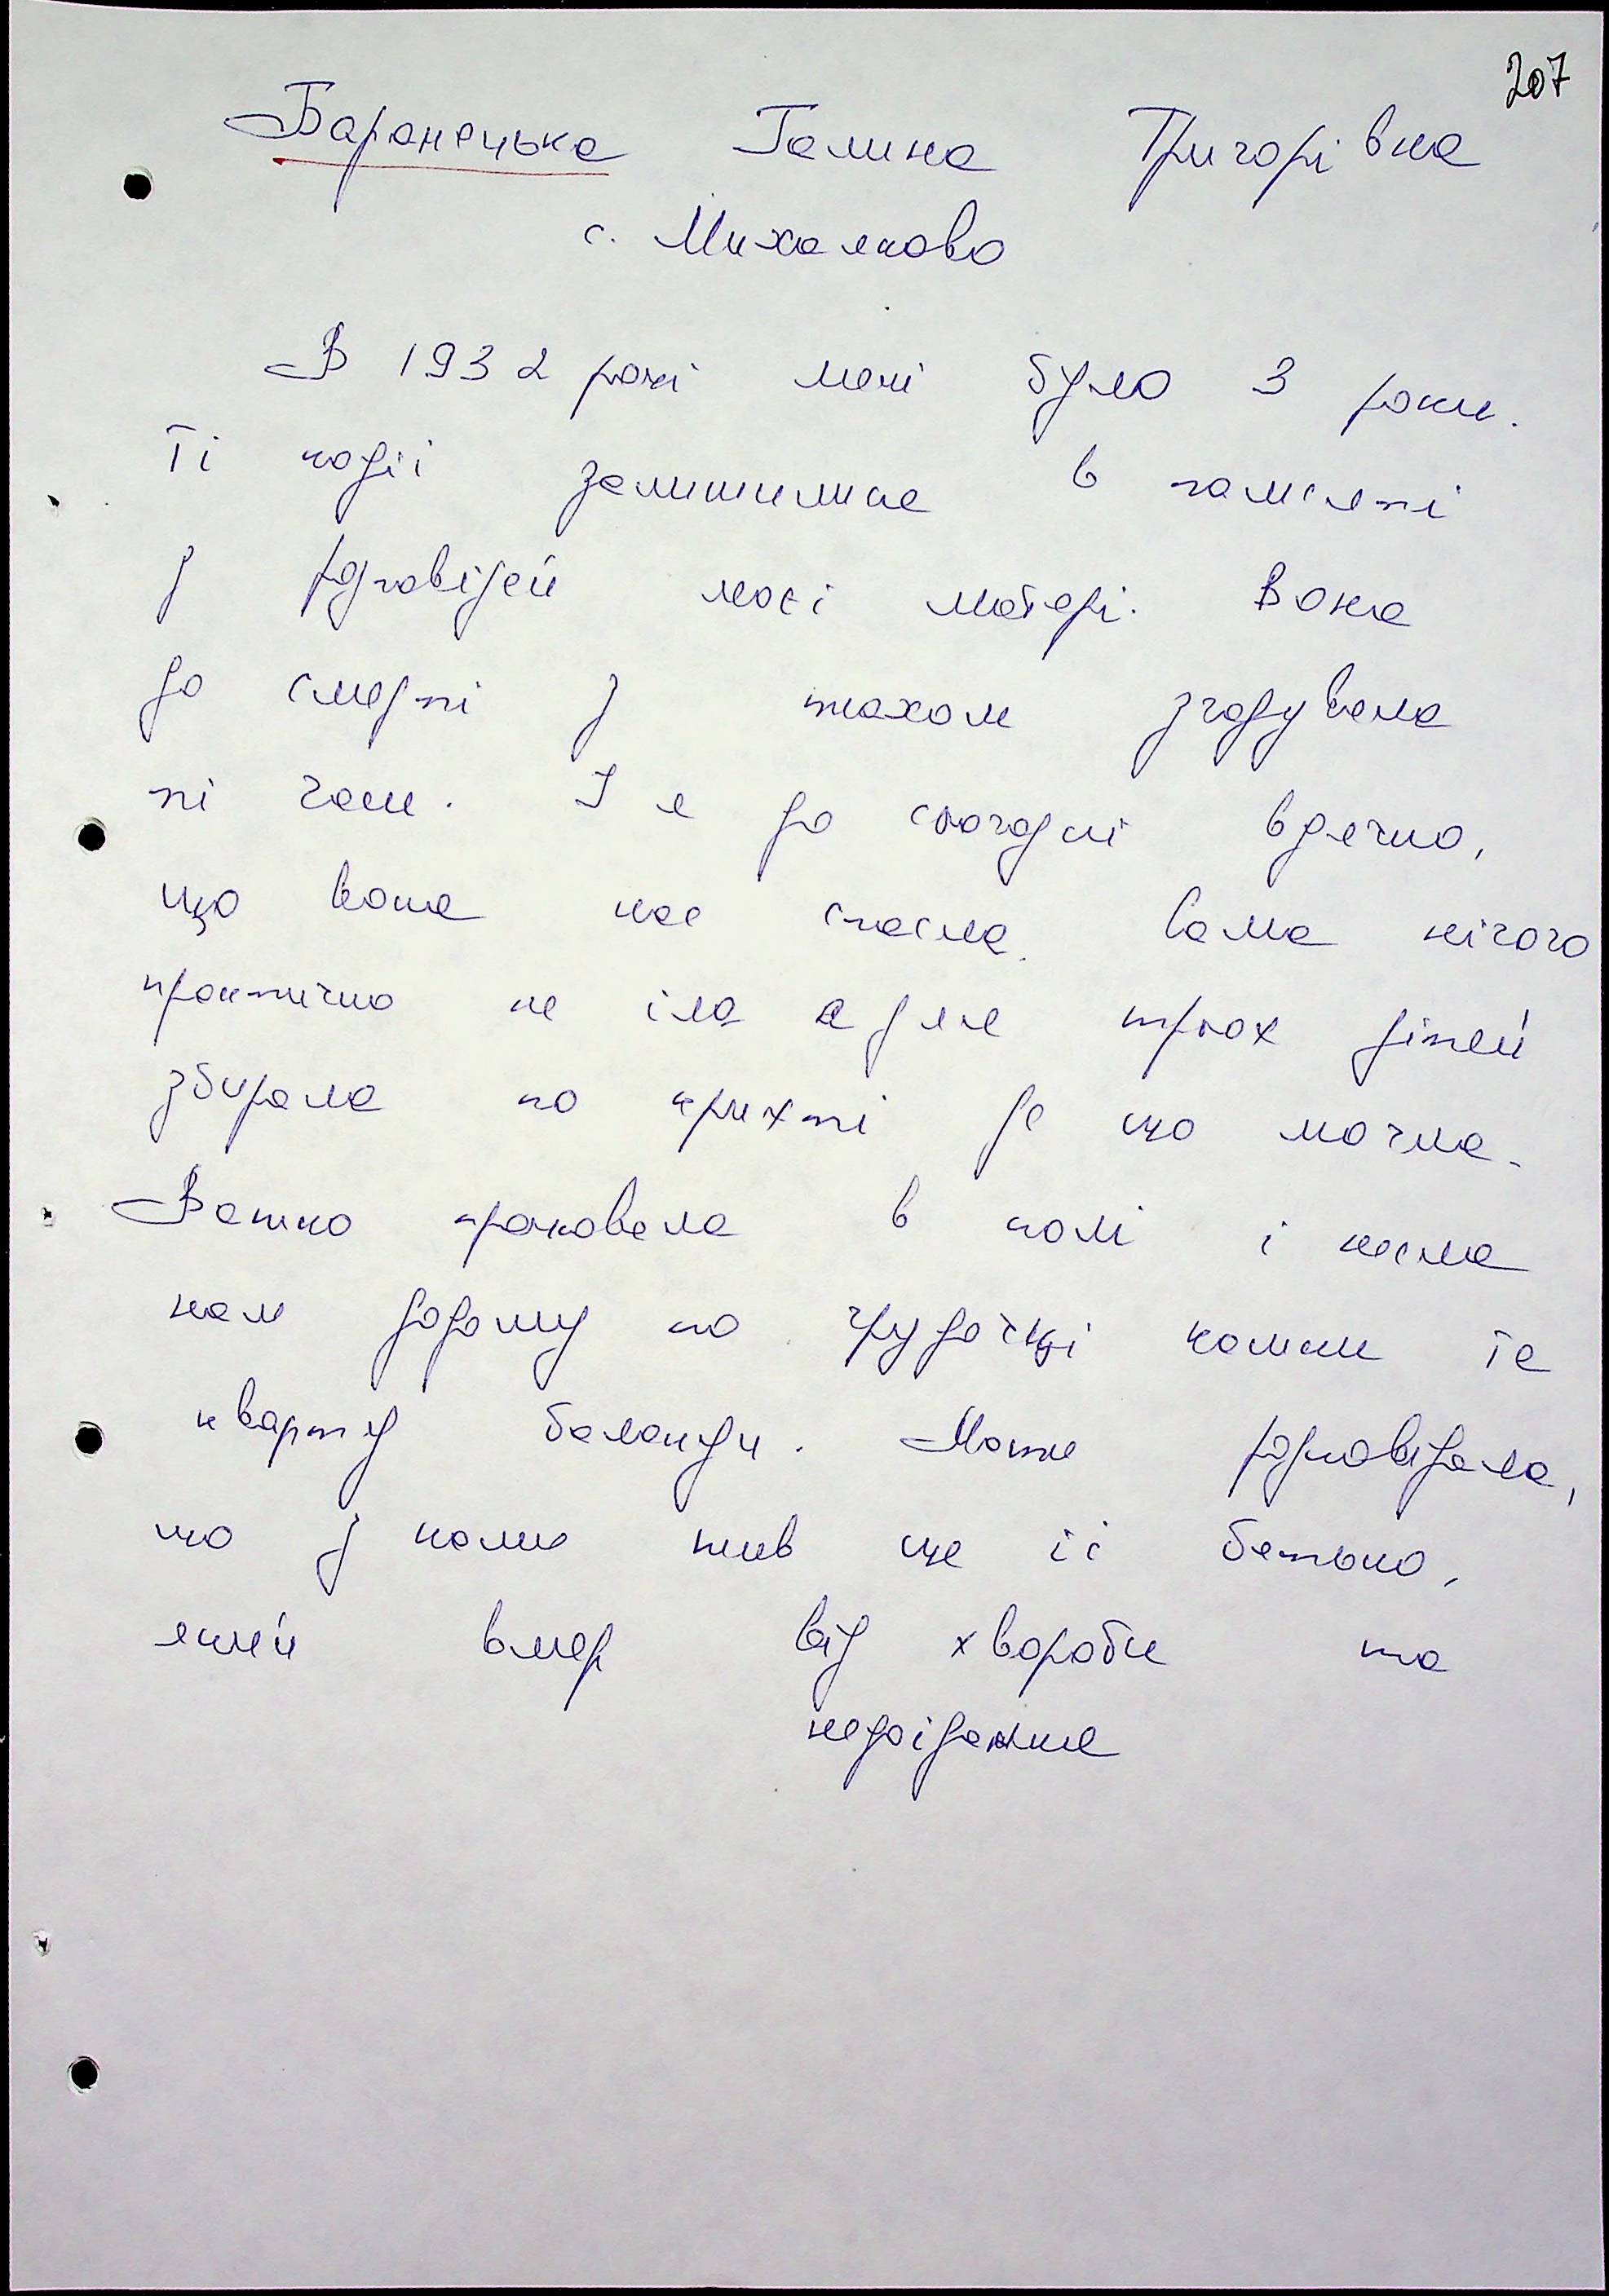 207
Баранецька Галина Григорівна
с. Михалково
В 1932 році мені було 3 роки.
Ті події залишилися в пам'яті
з розповідей моєї матері. Вона
до смерті з жахом згадувала
ті часи. І я до сьогодні вдячна,
що вона нас спасла. Сама нічого
практично не їла а для трьох дітей
збирала по крихті де що могла.
Важко працювала в полі і несла
нам додому по грудочці каши та
кварту баланди. Мати розповідала,
що з нами жив ще її батько,
який вмер від хвороби та
недоїдання